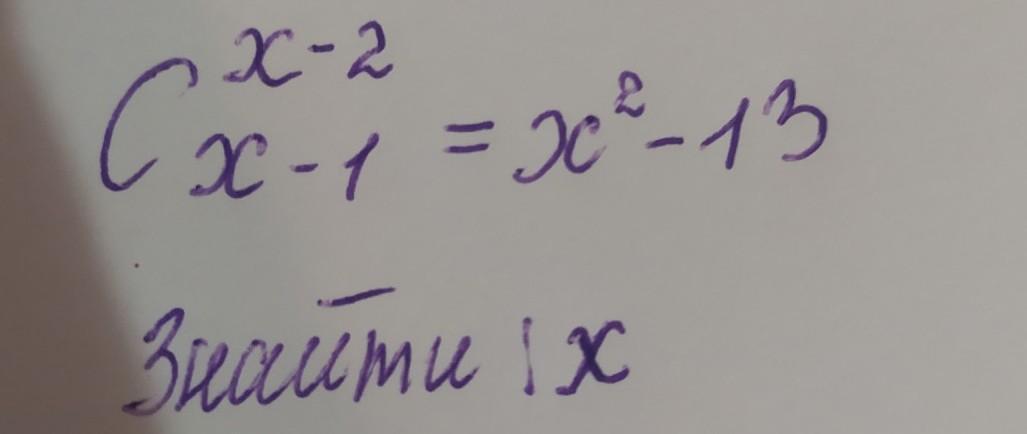 C_{x-1}^{x-2} = x² - 13
Знайти : x